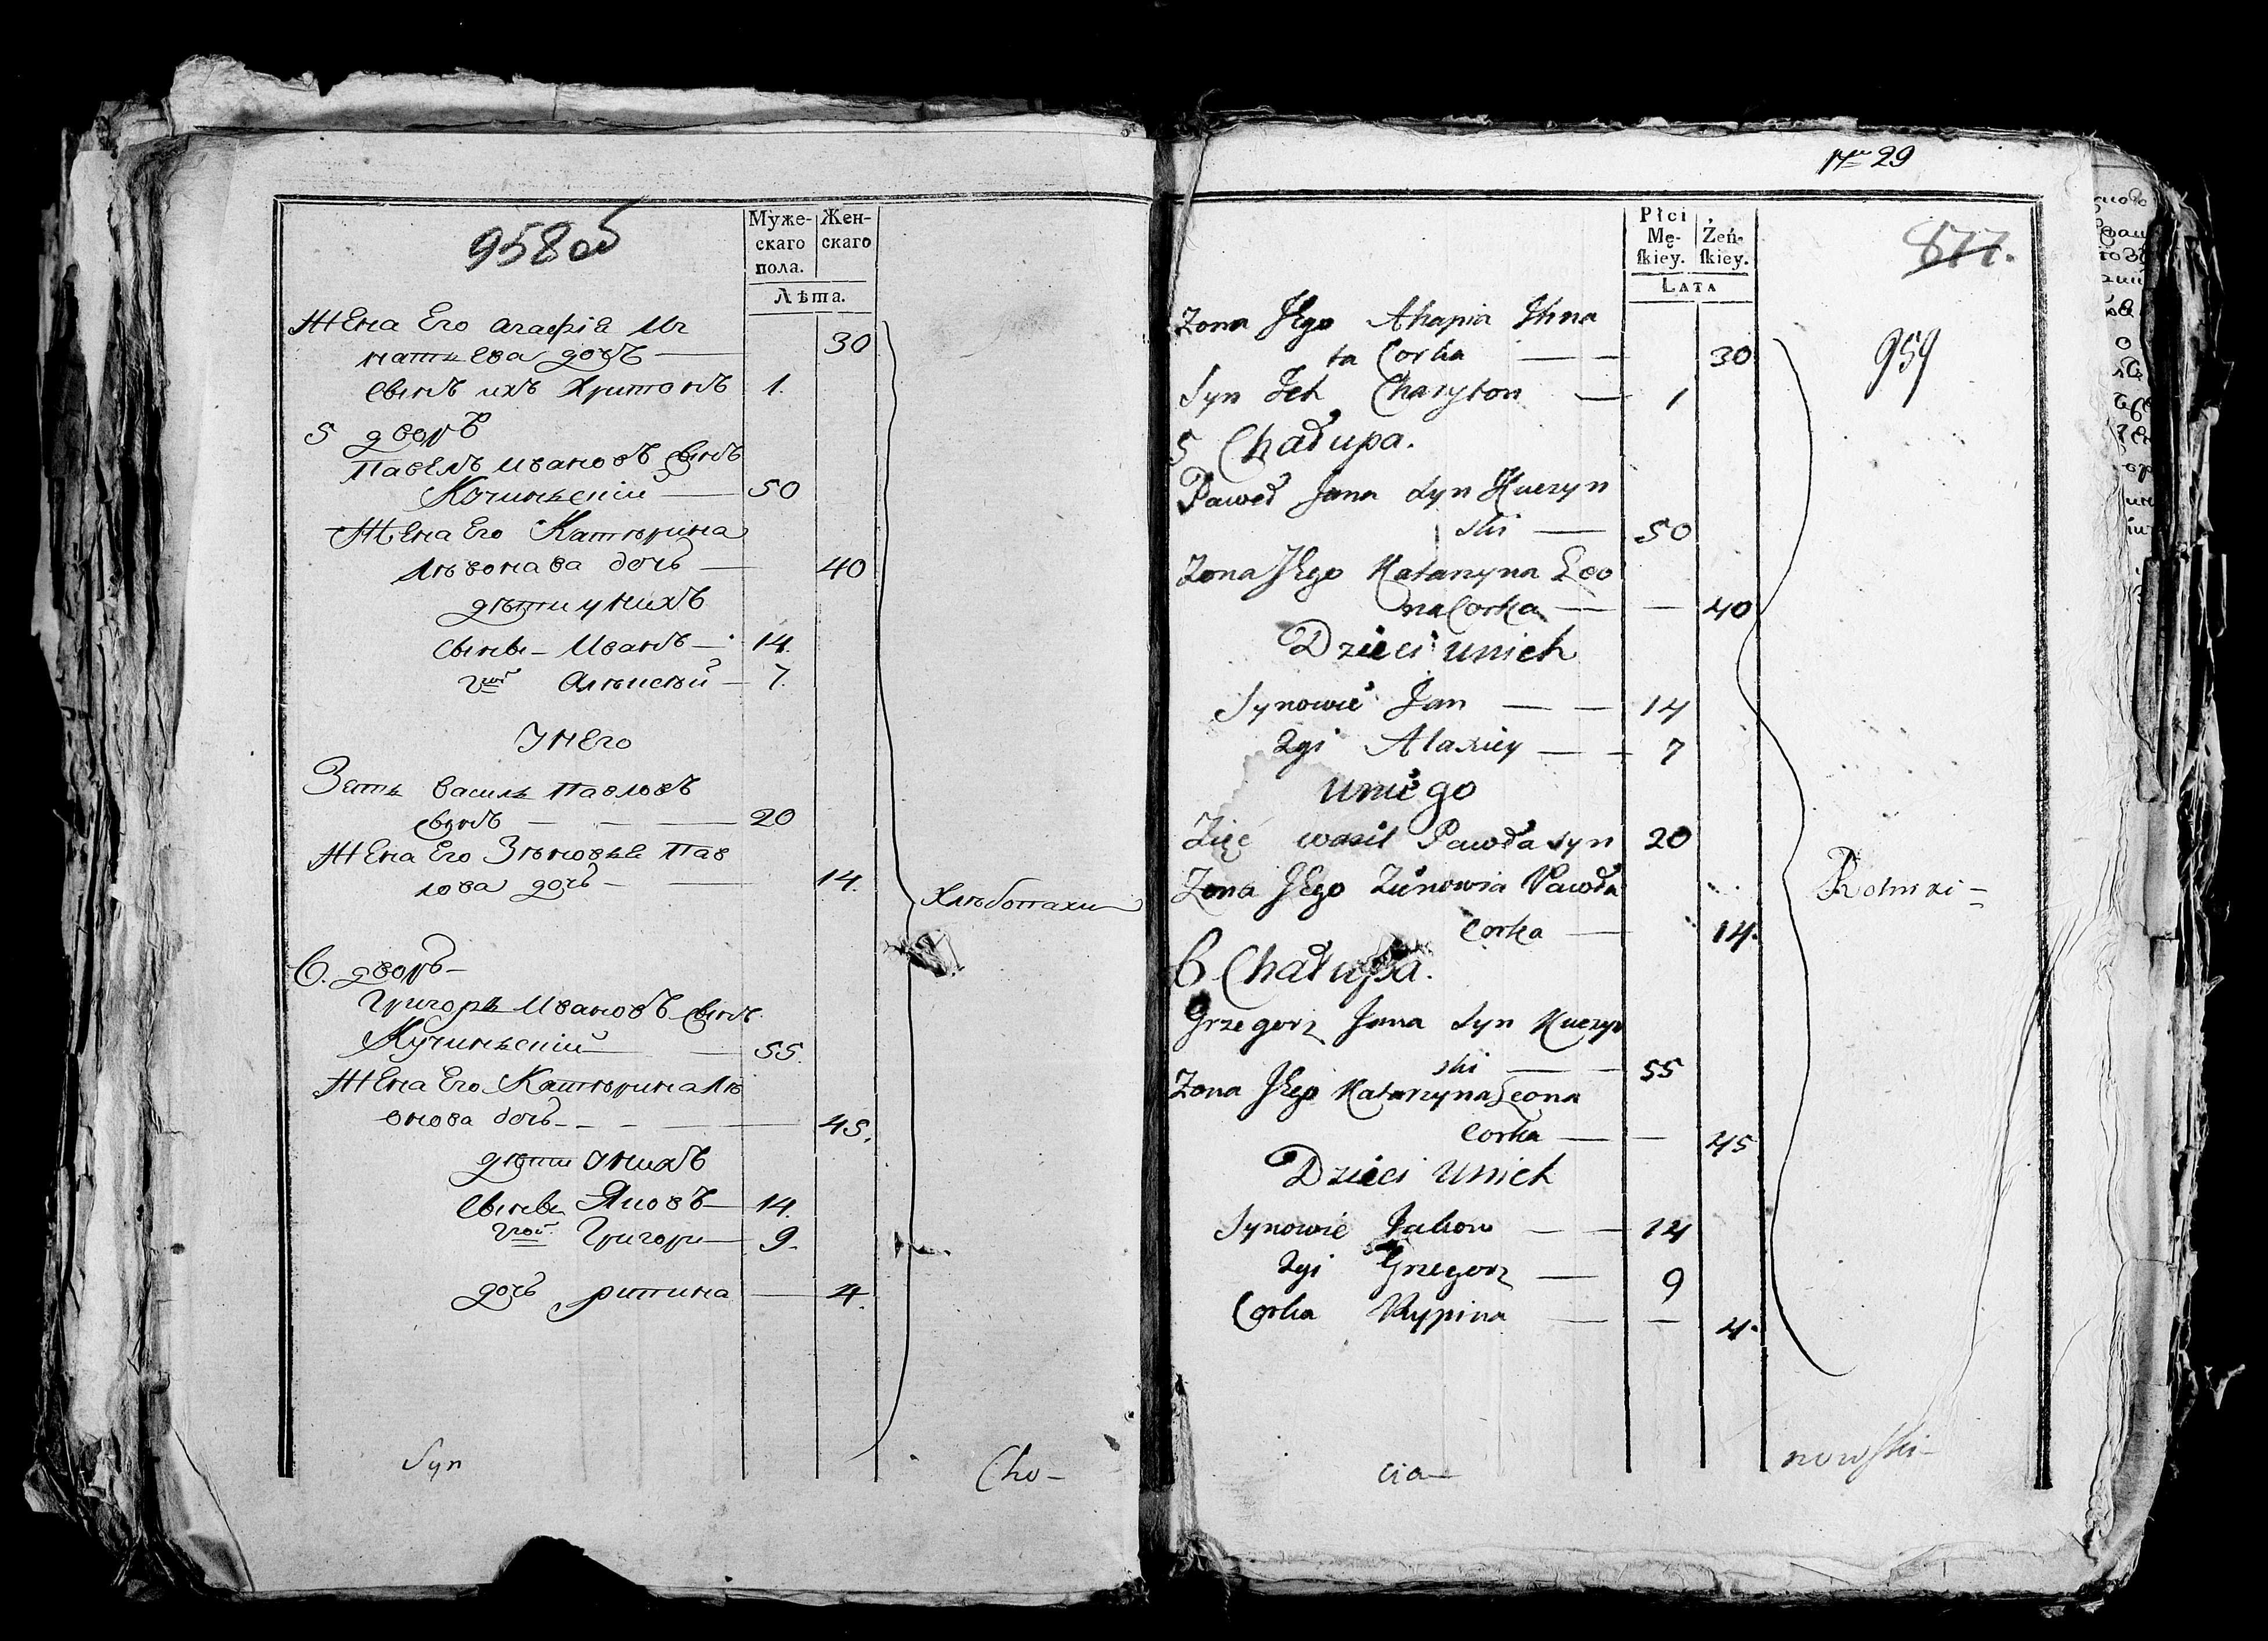 958 об
Муже-
скаго
пола.
Жен-
скаго
Лѣта.
Жена Его Агафiя Иг
натьева дочъ — 30
Сынъ ихъ Хритонъ 1.
5 дворъ
Павелъ Ивановъ сынъ
Кучинскiй — 50
Жена Его Катерина
Лѣвонава дочь — 40
дѣти у нихъ
Сынъ – Иванъ – 14.
2 Алѣксѣй – 7.
У него
Зеть василь Павловъ
сынъ — — — 20
Жена Его Зѣновья Пав
лова дочь — — 14.
6. дворъ –
Григоръ Ивановъ Сынъ
Кучинскiй — — 55.
Жена Его Катѣрина Лѣ
внова дочь – – — 45.
дѣти У нихъ
Сынъ Яковъ – 14.
2 Григори — 9.
дочь рипина — 4.
Хлѣбопахи
Syn
Cho –
Nu 29
Płci
Mę-
skiey.
Żeń-
skiey.
LATA
877.
959
Zona Jego Ahapia Ihna
ta Corka — — 30
Syn Ich Charyton — 1
5 Chałupa.
Paweł Jana Syn Kuczyn
ski — 50
Zona Jego Katarzyna Leo
na Corka — — 40
Dzieci unich
Synowie Jan — — 14
2gi Alaxiey — — 7
Uniego
Zięć wasil Pawła syn 20
Zona Jego Zienowia Pawła
Corka — 14.
6 Chałupa.
Grzegorz Jana Syn Kuczyn
ski — — 55
Zona Jego Katarzyna Leona
Corka — — 45
Dzieci Unich
Synowie Jakow — — 14
2gi Grzegorz — 9
Corka Rypina — — 4.
Rolnixi –
cia —
nowski –